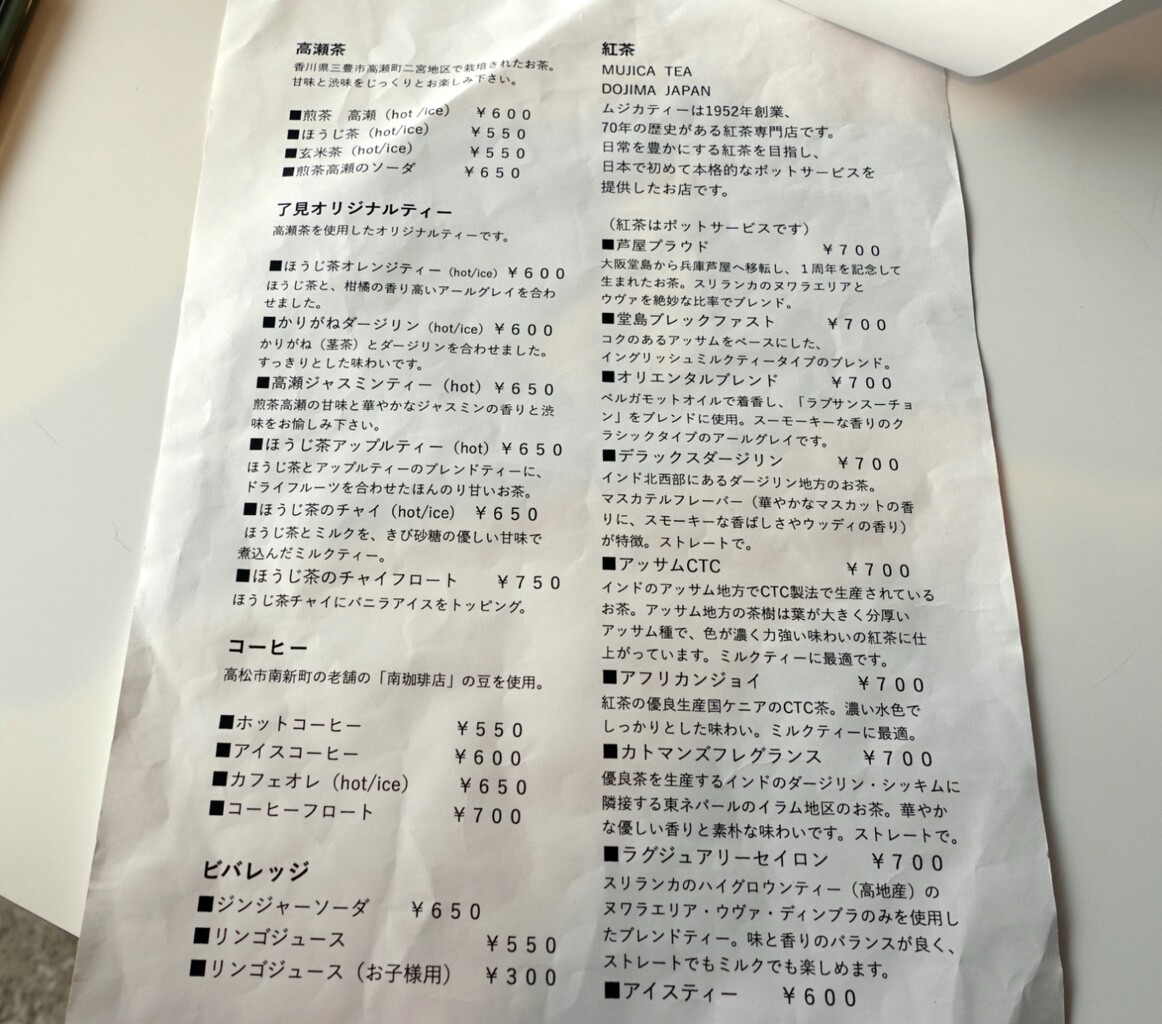 高瀬茶
香川県三豊市高瀬町二宮地区で栽培されたお茶。
甘味と渋味をじっくりとお楽しみ下さい。
■煎茶　高瀬（hot/ice）　￥６００
■ほうじ茶（hot/ice）　￥５５０
■玄米茶（hot/ice）　￥５５０
■煎茶高瀬のソーダ　￥６５０
了見オリジナルティー
高瀬茶を使用したオリジナルティーです。
■ほうじ茶オレンジティー（hot/ice）￥６００
ほうじ茶と、柑橘の香り高いアールグレイを合わ
せました。
■かりがねダージリン（hot/ice）￥６００
かりがね（茎茶）とダージリンを合わせました。
すっきりとした味わいです。
■高瀬ジャスミンティー（hot）￥６５０
煎茶高瀬の甘味と華やかなジャスミンの香りと渋
味をお愉しみ下さい。
■ほうじ茶アップルティー（hot）￥６５０
ほうじ茶とアップルティーのブレンドティーに、
ドライフルーツを合わせたほんのり甘いお茶。
■ほうじ茶のチャイ（hot/ice）￥６５０
ほうじ茶とミルクを、きび砂糖の優しい甘味で
煮込んだミルクティー。
■ほうじ茶のチャイフロート　￥７５０
ほうじ茶チャイにバニラアイスをトッピング。
コーヒー
高松市南新町の老舗の「南珈琲店」の豆を使用。
■ホットコーヒー　￥５５０
■アイスコーヒー　￥６００
■カフェオレ（hot/ice）　￥６５０
■コーヒーフロート　￥７００
ビバレッジ
■ジンジャーソーダ　￥６５０
■リンゴジュース　￥５５０
■リンゴジュース（お子様用）　￥３００
紅茶
MUJICA TEA
DOJIMA JAPAN
ムジカティーは1952年創業、
70年の歴史がある紅茶専門店です。
日常を豊かにする紅茶を目指し、
日本で初めて本格的なポットサービスを
提供したお店です。
（紅茶はポットサービスです）
■芦屋プラウド　￥７００
大阪堂島から兵庫芦屋へ移転し、１周年を記念して
生まれたお茶。スリランカのヌワラエリアと
ウヴァを絶妙な比率でブレンド。
■堂島ブレックファスト　￥７００
コクのあるアッサムをベースにした、
イングリッシュミルクティータイプのブレンド。
■オリエンタルブレンド　￥７００
ベルガモットオイルで着香し、「ラプサンスーチョ
ン」をブレンドに使用。スーモーキーな香りのク
ラシックタイプのアールグレイです。
■デラックスダージリン　￥７００
インド北西部にあるダージリン地方のお茶。
マスカテルフレーバー（華やかなマスカットの香
りに、スモーキーな香ばしさやウッディの香り）
が特徴。ストレートで。
■アッサムCTC　￥７００
インドのアッサム地方でCTC製法で生産されている
お茶。アッサム地方の茶樹は葉が大きく分厚い
アッサム種で、色が濃く力強い味わいの紅茶に仕
上がっています。ミルクティーに最適です。
■アフリカンジョイ　￥７００
紅茶の優良生産国ケニアのCTC茶。濃い水色で
しっかりとした味わい。ミルクティーに最適。
■カトマンズフレグランス　￥７００
優良茶を生産するインドのダージリン・シッキムに
隣接する東ネパールのイラム地区のお茶。華やか
な優しい香りと素朴な味わいです。ストレートで。
■ラグジュアリーセイロン　￥７００
スリランカのハイグロウンティー（高地産）の
ヌワラエリア・ウヴァ・ディンブラのみを使用し
たブレンドティー。味と香りのバランスが良く、
ストレートでもミルクでも楽しめます。
■アイスティー　￥６００